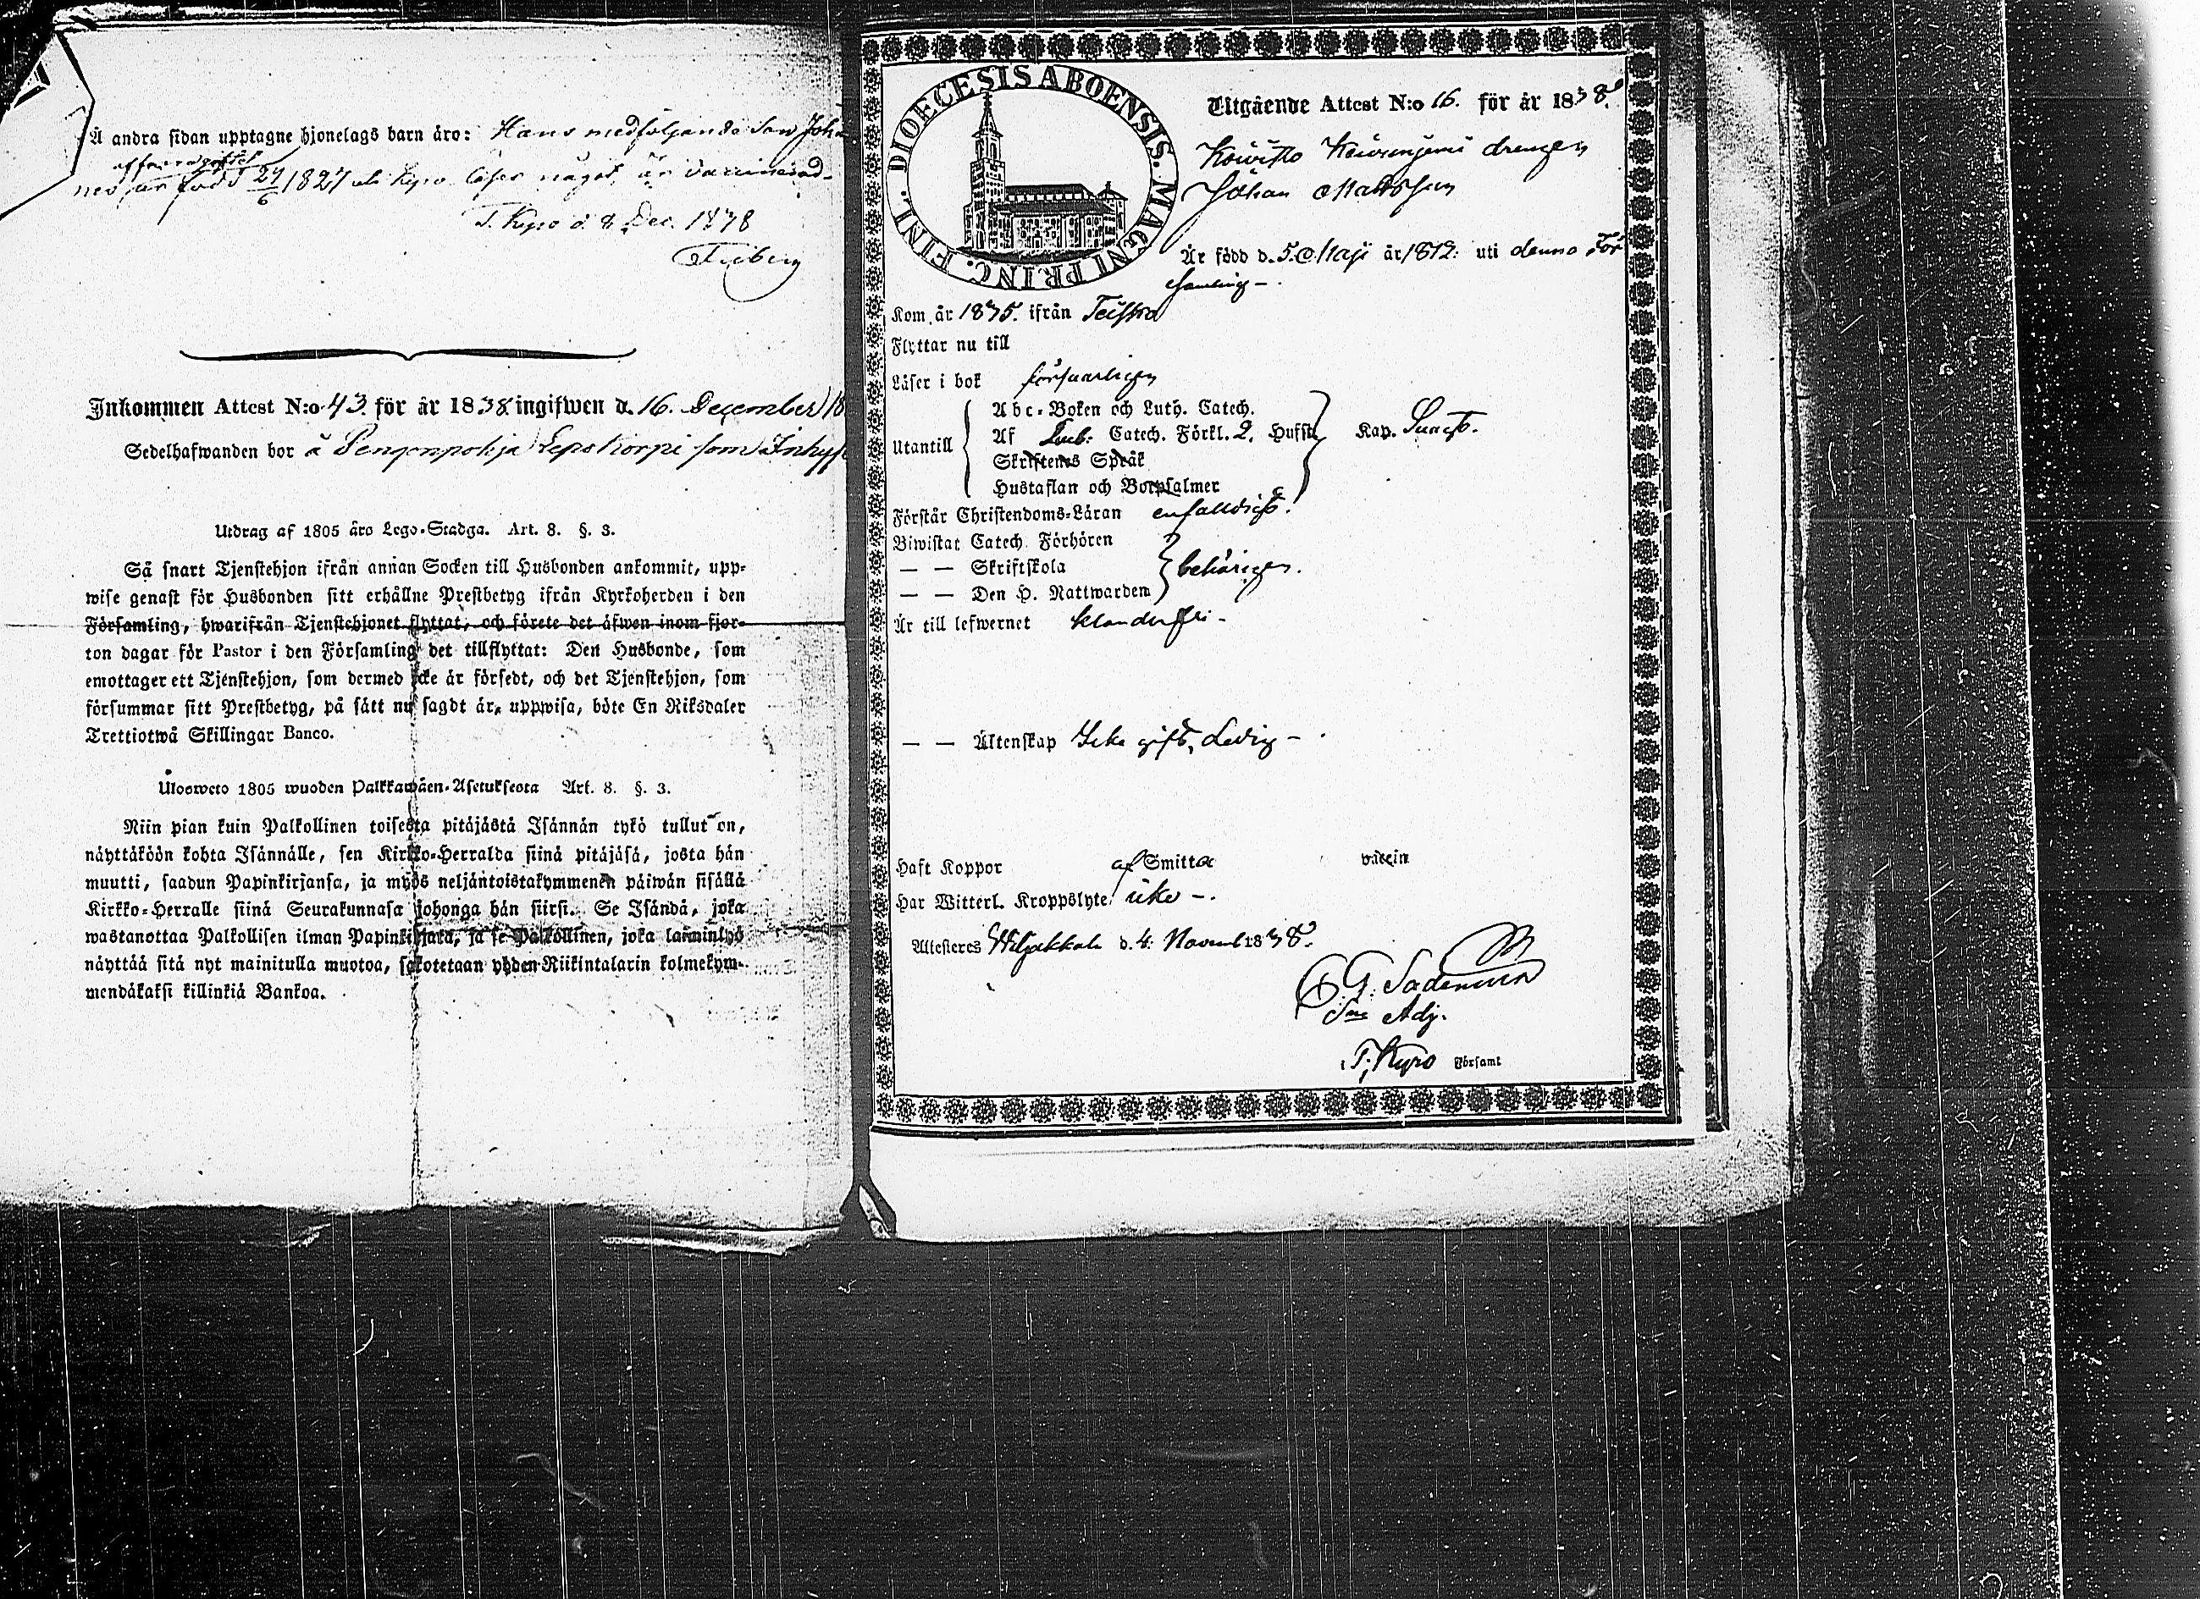 Å andra sidan upptagne hjonelags barn äro: Hans medföljande Son Joha
nes, är född 29/6 1827 uti Kyro läser något, är vaccinerad.
T. Kyro d. 8 Dec. 1838
Inkommen Attest N:o 43. för år 1838 ingifwen d. 16. December 18
Sedelhafwanden bor å Lepokorpi som Inhys
Utdrag af 1805 års Lego-Stadga. Art. 8. §. 3.
Så snart Tjenstehjon ifrån annan Socken till Husbonden ankommit, upp-
wise genast för Husbonden sitt erhållne Prestbetyg ifrån Kyrkoherden i den
Församling, hwarifrån Tjenstehjonet flyttat, och förete det äfwen inom fjor-
ton dagar för Pastor i den Församling det tillflyttat: Den Husbonde, som
emottager ett Tjenstehjon, som dermed icke är försedt, och det Tjenstehjon, som
försummar sitt Prestbetyg, på sätt nu sagdt är, uppwisa, böte En Riksdaler
Trettiotwå Skillingar Banco.
Ulosweto 1805 wuoden Palkkawäen-Asetuksesta Art. 8. §. 3.
Niin pian kuin Palkollinen toisesta pitäjästä Isännän tykö tullut on,
näyttäköön kohta Isännälle, sen Kirkko-Herralda siinä pitäjäsä, josta hän
muutti, saadun Papinkirjansa, ja myös neljäntoistakymmenen päiwän sisällä
Kirkko-Herralle siinä Seurakunnasa johonga hän siirsi. Se Isändä, joka
wastanottaa Palkollisen ilman Papinkirjata, ja se Palkollinen, joka laiminlyö
näyttää sitä nyt mainitulla muotoa, sakotetaan yhden Riikintalarin kolmekym-
mendäkaksi killinkiä Bankoa.
DIOECESIS ABOENSIS. MAGNI PRINC. FINL.
Utgående Attest N:o 16. för år 1838.
Koivisto Koivuniemi drengen
Johan Mattsson
Är född d. 5. Maji år 1812: uti denna För
samling -.
Kom år 1835. ifrån Teisko
Flyttar nu till
Läser i bok försvarligen
Utantill
Abc-Boken och Luth. Catech.
Af Sveb: Catech. Förkl. 2. Hufst. Kap. Svagt.
Skriftenes Språk
Hustaflan och Botpsalmer
Förstår Christendoms-Läran enfaldigt.
Biwistat Catech. Förhören
— — Skriftskola behörigen.
— — Den H. Nattwarden
Är till lefwernet klanderfri -
— — Äktenskap Icke gift, Ledig -.
Haft Koppor af Smitta vaccin
Har Witterl. Kroppslyte icke -.
Attesteres Wiljakkala d. 4. Novemb. 1838.
Sac. Adj.
i T. Kyro Församl